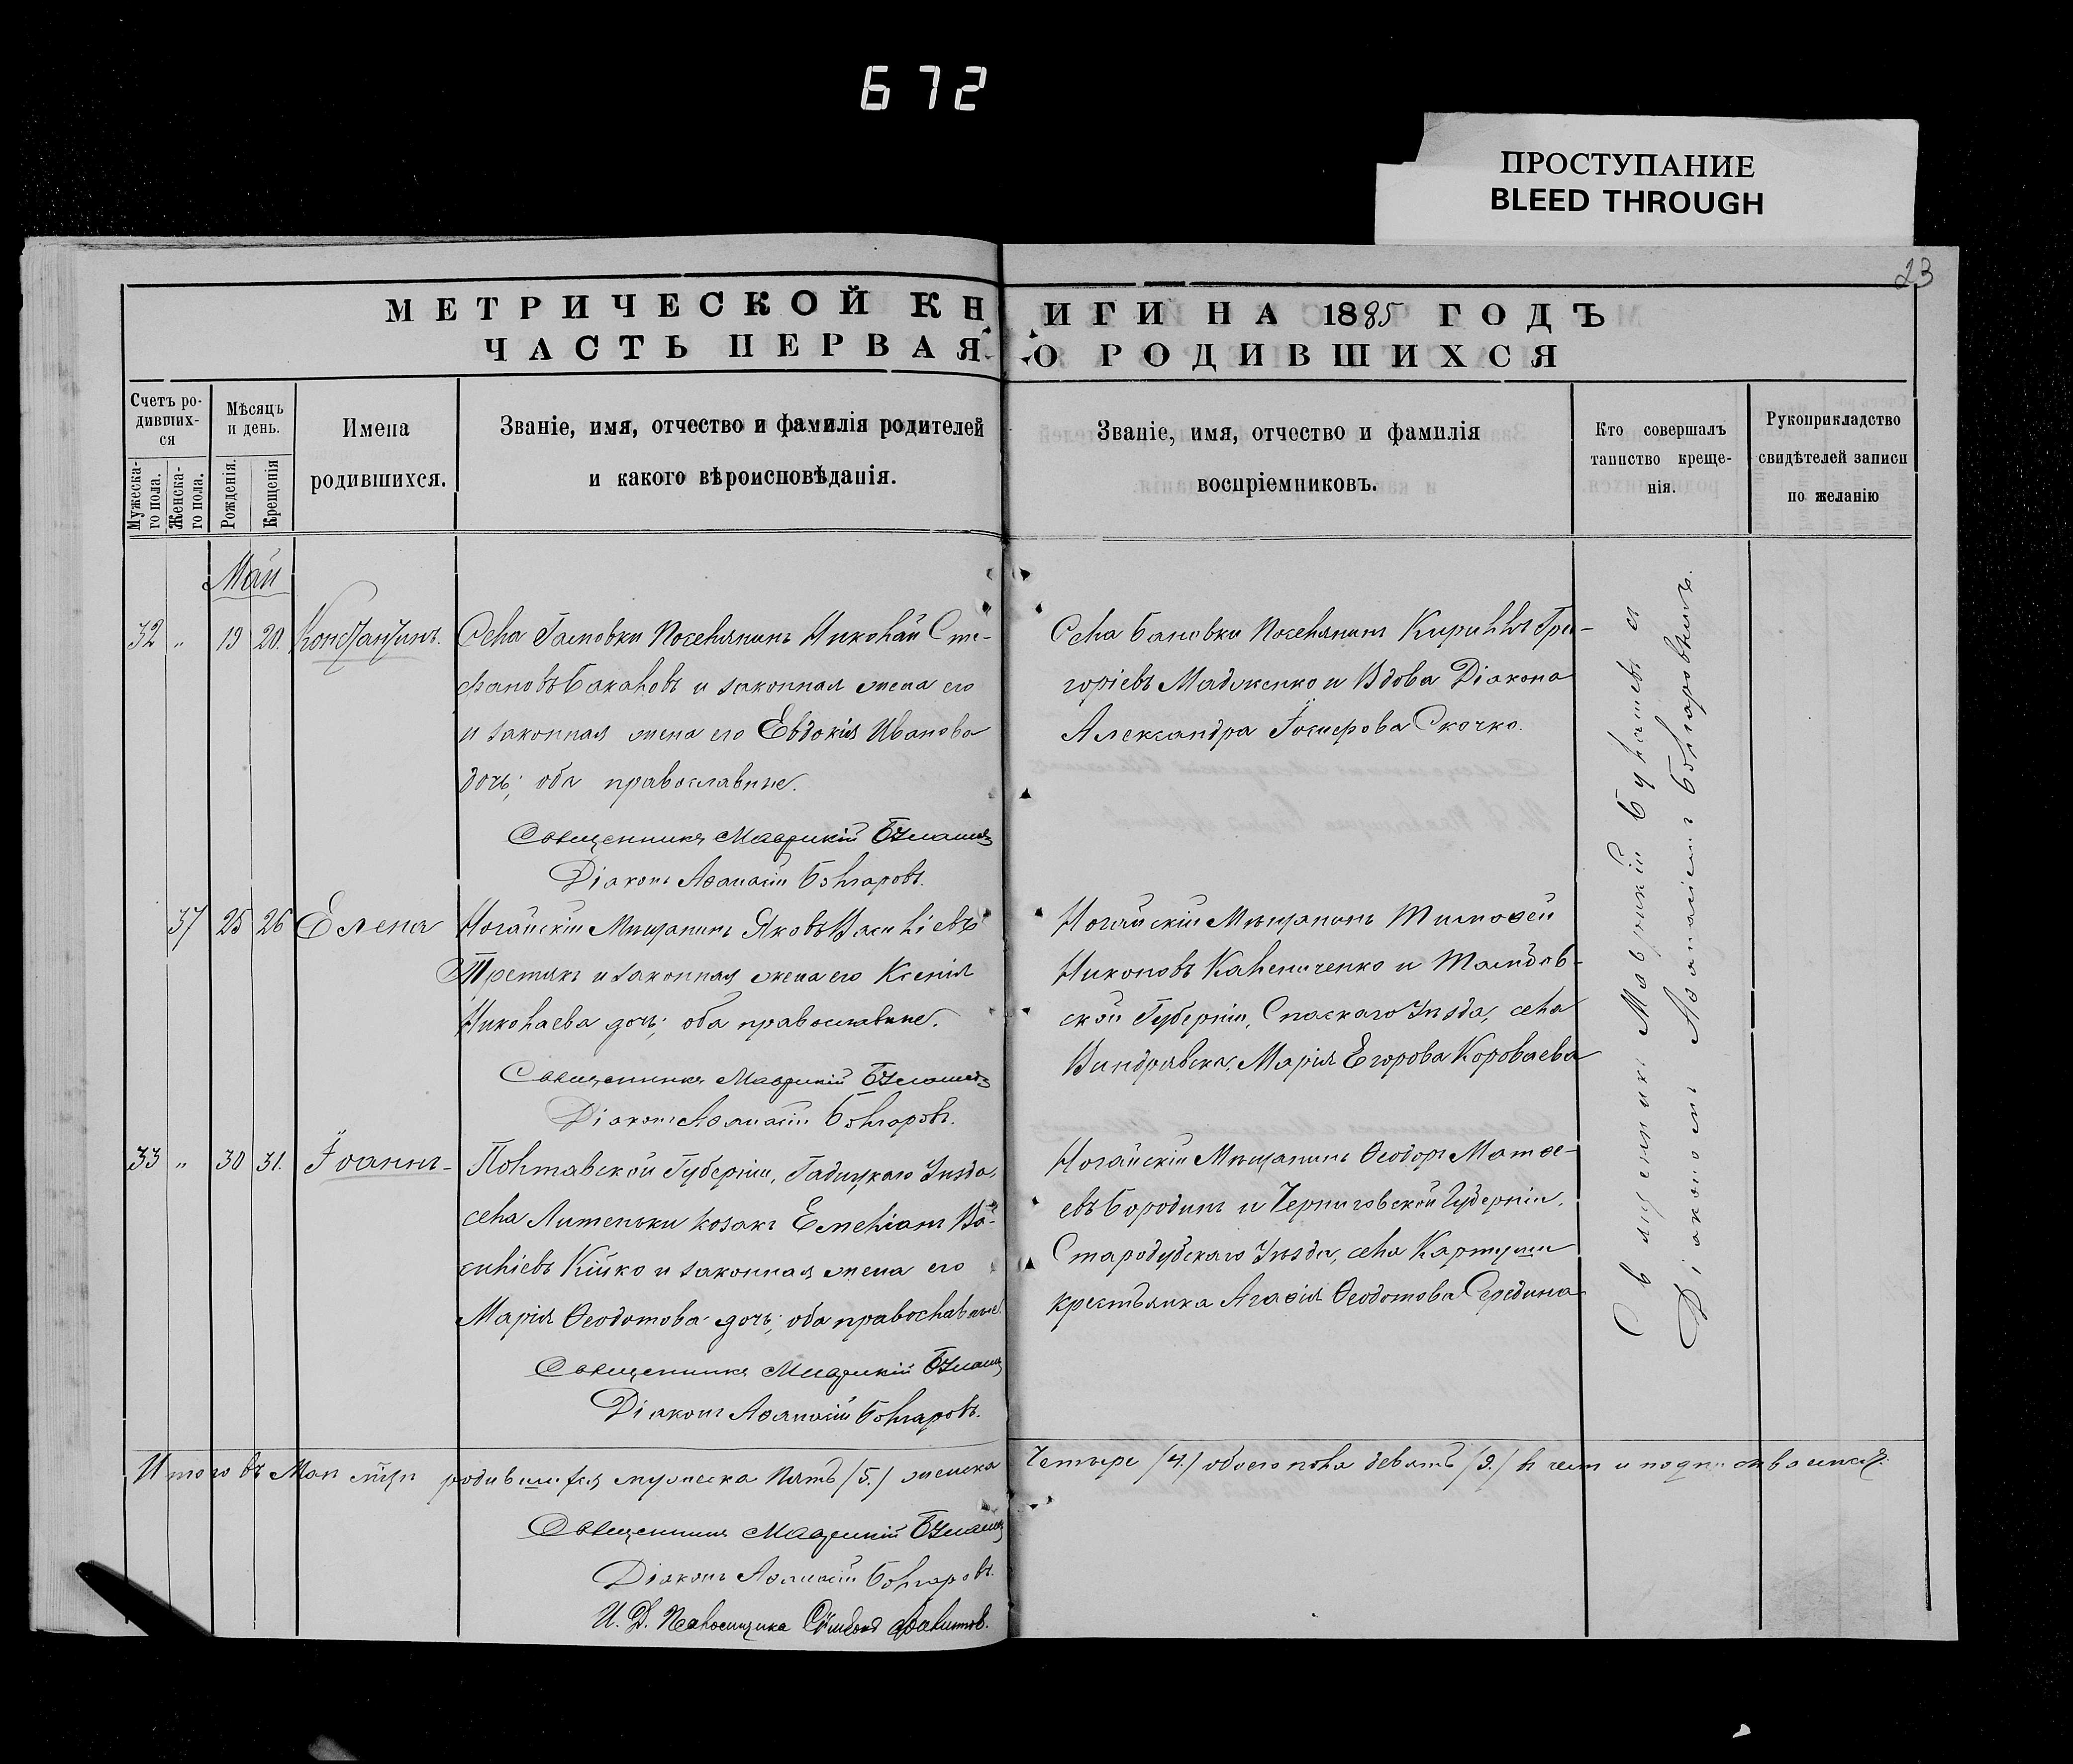 672
ПРОСТУПАНИЕ
BLEED THROUGH
23
МЕТРИЧЕСКОЙ КНИГИ НА 1885 ГОДЪ
ЧАСТЬ ПЕРВАЯ О РОДИВШИХСЯ
Счетъ ро-
дивших-
ся
Мужеска-
го пола.
Женска-
го пола.
Мѣсяцъ
и день.
Рожденія.
Крещенія
Имена
родившихся.
Званіе, имя, отчество и фамилія родителей
и какого вѣроисповѣданія.
Званіе, имя, отчество и фамилія
воспріемниковъ.
Кто совершалъ
таинство креще-
нія.
Рукоприкладство
свидѣтелей записи
по желанію
Май
32 " 19 20. Константинъ.
Села Гамовки Поселянинъ Николай Сте-
фановъ Бакаловъ и законная жена его
и законная жена его Евдокія Иванова
дочь; оба православные.
Священникъ Маврикій
Діаконъ Аѳанасій Болгаровъ.
Села Бановки Поселянинъ Кириллъ Гри-
горіевъ Мадженко и Вдова Діакона
Александра Іосифова Скочко.
37 25 26 Елена
Ногайскій Мѣщанинъ Яковъ Василіевъ
Третякъ и законная жена его Ксенія
Николаева дочь; оба православные.
Священникъ Маврикій
Діаконъ Аѳанасій Болгаровъ.
Ногайскій Мѣщанинъ Тимоѳей
Никоновъ Калениченко и Тамбов-
ской Губерніи, Спаскаго Уѣзда, села
Виндрявска, Марія Егорова Короваева
33 " 30 31. Іоаннъ
Полтавской Губерніи, Гадяцкаго Уѣзда,
села Лютеньки козакъ Емеліанъ Ва-
силіевъ Кійко и законная жена его
Марія Ѳеодотова дочь; оба православные
Священникъ Маврикій
Діаконъ Аѳанасій Болгаровъ.
Ногайскій Мѣщанинъ Ѳеодоръ Матѳе-
евъ Бородинъ и Черниговской Губерніи,
Стародубскаго Уѣзда, села Картуши
крестьянка Агаѳія Ѳеодотова Середина
Священникъ Маврикій
Діаконъ Аѳанасій Болгаровъ.
Итого въ Маи м-цѣ родившихся мужеска Пять /5./ женска Четыре /4./ обоего пола девять /9./ въ чемъ и подписываемся.
Священникъ Маврикій
Діаконъ Аѳанасій Болгаровъ.
И. Д. Псаломщика